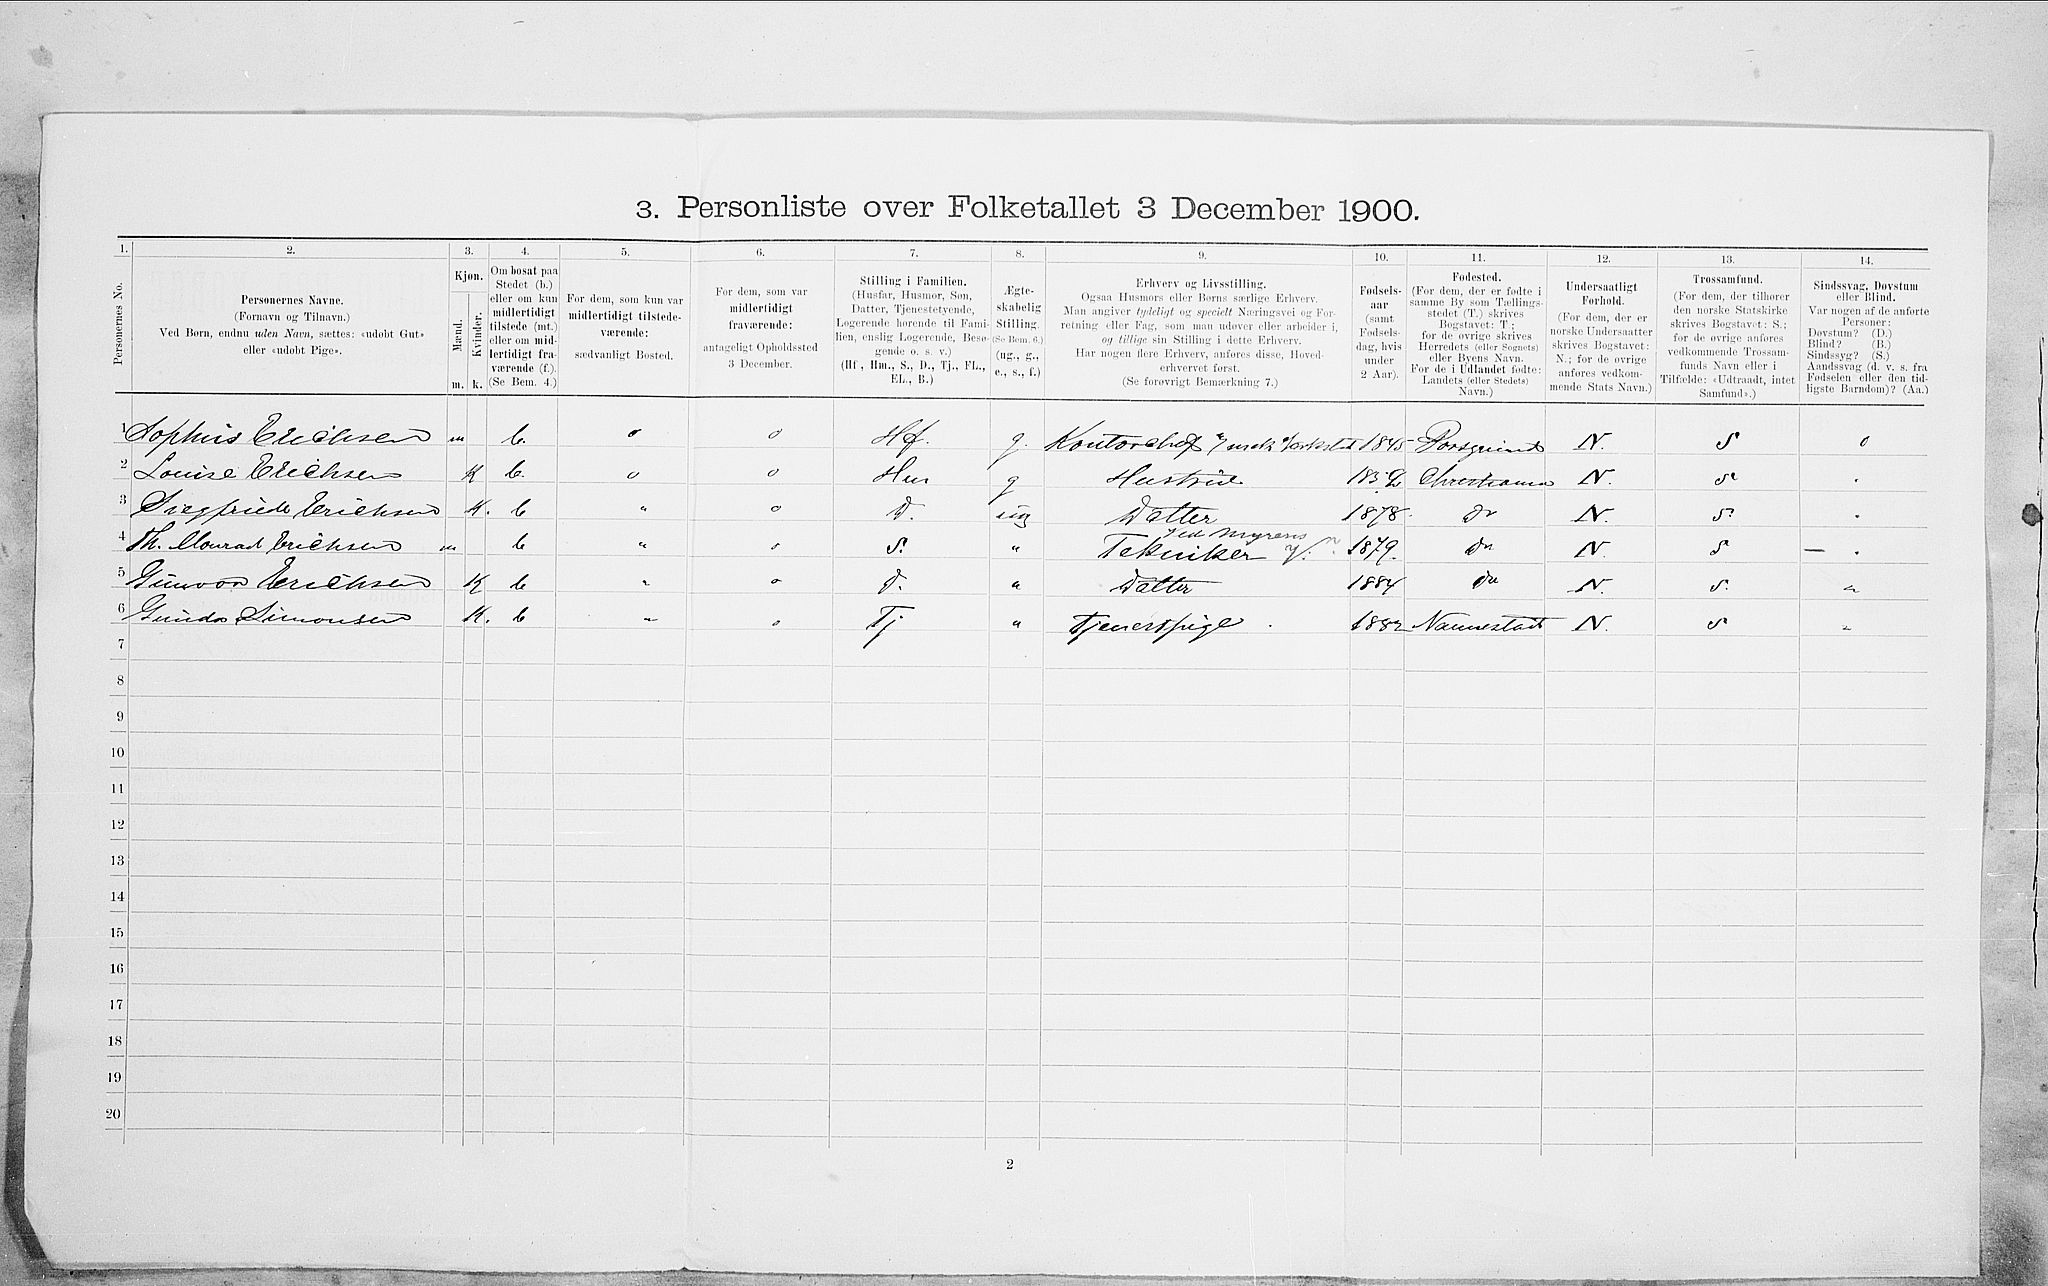 3. Personliste over Folketallet 3 December 1900.
1. 2. 3. 4. 5. 6. 7. 8. 9. 10. 11. 12. 13. 14.
Personernes No.
Personernes Navne.
(Fornavn og Tilnavn.)
Ved Børn, endnu uden Navn, sættes: «udøbt Gut»
eller «udøbt Pige».
Kjøn.
Mænd.
Kvinder.
m. k.
Om bosat paa
Stedet (b.)
eller om kun
midlertidigt
tilstede (mt.)
eller om mid-
lertidigt fra-
værende (f.).
(Se Bem. 4.)
For dem, som kun var
midlertidigt tilstede-
værende:
sædvanligt Bosted.
For dem, som var
midlertidigt
fraværende:
antageligt Opholdssted
3 December.
Stilling i Familien.
(Husfar, Husmor, Søn,
Datter, Tjenestetyende,
Logerende hørende til Fami-
lien, enslig Logerende, Besø-
gende o. s. v.)
(Hf., Hm., S., D., Tj., FL.,
EL., B.)
Ægte-
skabelig
Stilling.
(Se Bem. 6.)
(ug., g.,
e., s., f.)
Erhverv og Livsstilling.
Ogsaa Husmors eller Børns særlige Erhverv.
Man angiver tydeligt og specielt Næringsvei og For-
retning eller Fag, som man udøver eller arbeider i,
og tillige sin Stilling i dette Erhverv.
Har nogen flere Erhverv, anføres disse, Hoved-
erhvervet først.
(Se forøvrigt Bemærkning 7.)
Fødsels-
aar
(samt
Fødsels-
dag, hvis
under
2 Aar).
Fødested.
(For dem, der er fødte i
samme By som Tællings-
stedet (T.) skrives
Bogstavet: T.;
for de øvrige skrives
Herredets (eller Sognets)
eller Byens Navn.
For de i Udlandet fødte:
Landets (eller Stedets)
Navn.)
Undersaatligt
Forhold.
(For dem, der er
norske Undersaatter
skrives Bogstavet:
N.; for de øvrige
anføres vedkom-
mende Stats Navn.)
Trossamfund.
(For dem, der tilhører
den norske Statskirke
skrives Bogstavet: S.;
for de øvrige anføres
vedkommende Trossam-
funds Navn eller i
Tilfælde: «Udtraadt, intet
Samfund».)
Sindssvag, Døvstum
eller Blind.
Var nogen af de anførte
Personer:
Døvstum? (D.)
Blind? (B.)
Sindssyg? (S.)
Aandssvag (d. v. s. fra
Fødselen eller den tid-
ligste Barndom)? (Aa.)
1 Sophus Erichsen m b. o o Hf. g. Kontorchef 1845 Porsgrund N. S o
2 Louise Erichsen K b. o o Hus g Hustrue Christiania N. S .
3 Siegfriede Erichsen K. b " o D. ug Datter 1878. do N. S. .
4 Th. Monrad Erichsen m b " o S. " Tekniker ved Myrens 1879. do N. S — .
5 Gunvor Erichsen K b " o D. " Datter 1884 do N. S. "
6 Gunda Simonsen K. b " o Tj " Tjenestpige . 1882 Nannestad N. S "
7
8
9
10
11
12
13
14
15
16
17
18
19
20
2